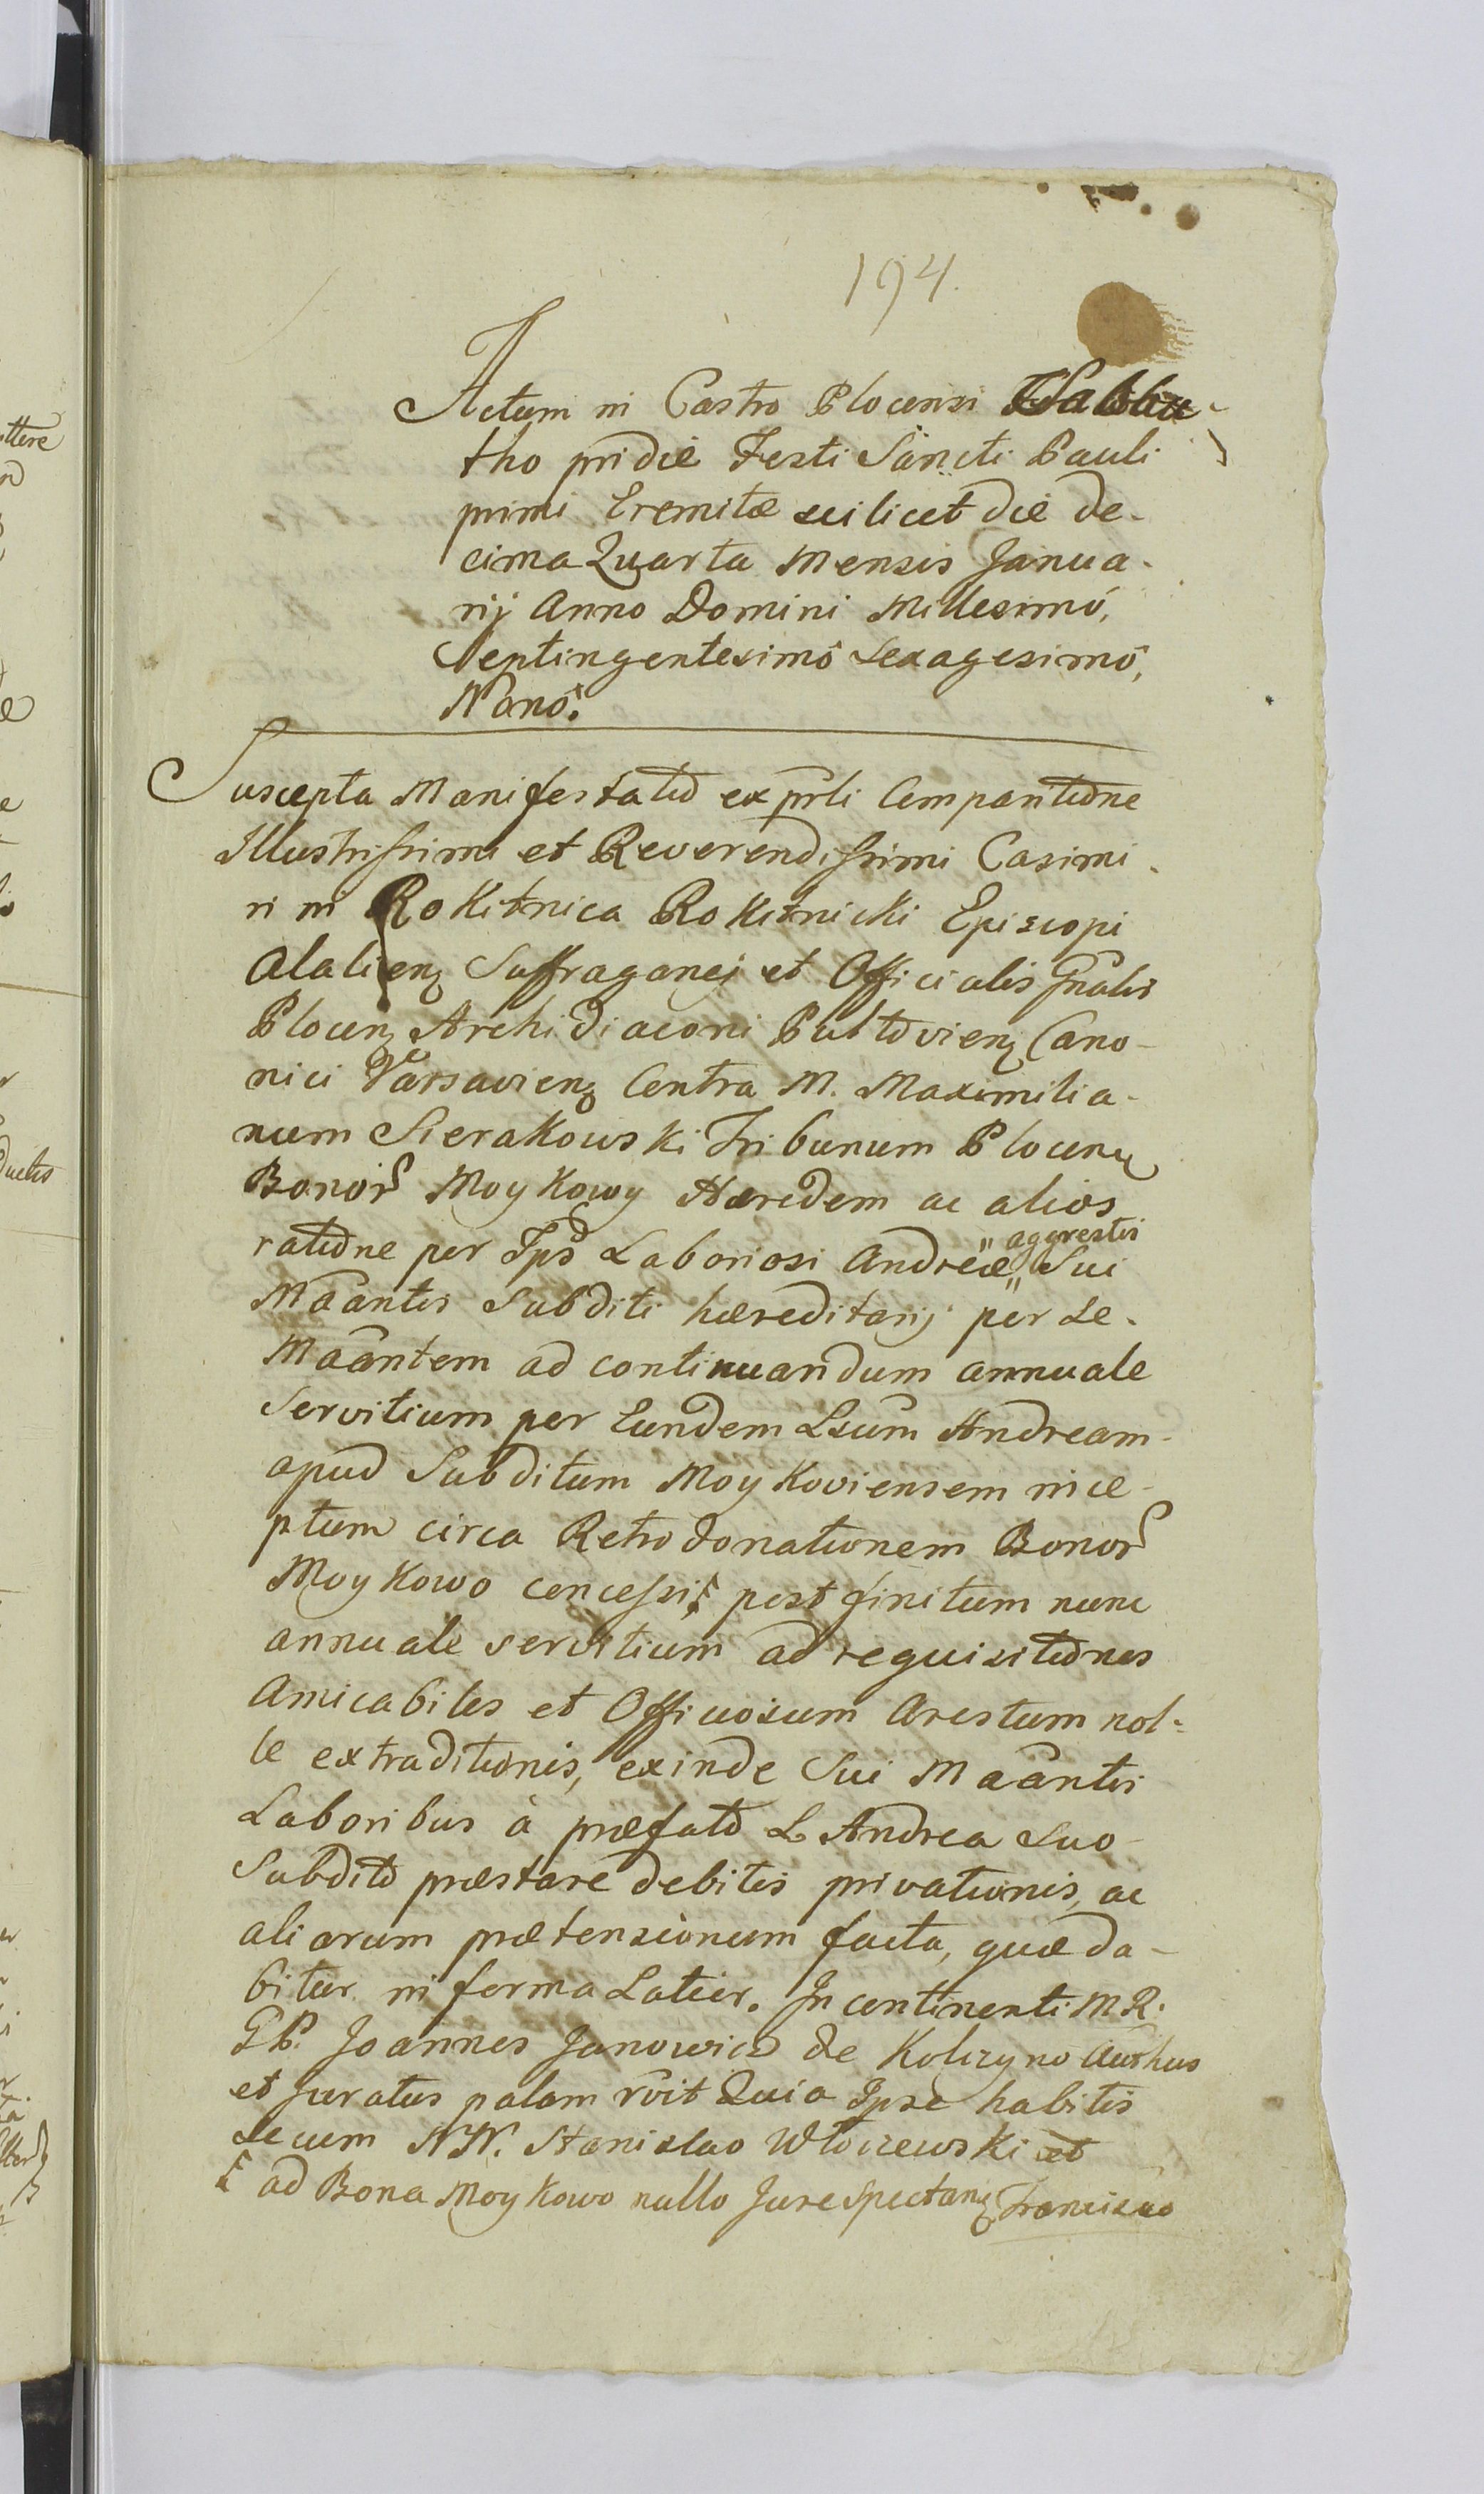 194.
Actum in Castro Plocensi Sabba-
tho pridie Festi Sancti Pauli
primi Eremitæ scilicet die de-
cima Quarta Mensis Janua-
rij Anno Domini Millesimô,
Septingentesimô Sexagesimô,
Nonô.
Suscepta Manifestatio ex prli Compantione
Illustrissimi et Reverendissimi Casimi-
ri in Rokitnica Rokitnicki Episcopi
Alalien Suffraganej et Officialis Gnalis
Plocen Archidiaconi Pultovien Cano-
nici Varsavien Contra M. Maximilia-
num Sierakowski Tribunum Plocen
Bonor Moykowy Hæredem ac alios
ratione per Ipsd Laboriosi Andreæ "agrestis" Sui
Maântis Subditi hæreditarij per Se-
Maântem ad continuandum annuale
Servitium per Eundem Lsum Andream-
apud Subditum Moykoviensem ince-
ptum circa Retrodonationem Bonor
Moykowo concessi post finitum nunc
annuale servitium ad requisitiones
Amicabiles et Officiosum Arestum nol-
le extraditionis, exinde Sui Maântis
Laboribus à præfato L Andrea Suo-
Subdito præstare debitis privationis, ac
aliarum prætensionum facta, quæ da-
bitur in forma Latior. In continenti M R.
GP. Joannes Janowicz de Kolczyno Authus
et Juratus palam rôit Quia Ipse habitis
Secum NN. Stanislao Włoczewski et
ad Bona Moykowo nullo Jure Spectan Francisco
ttere
ductis